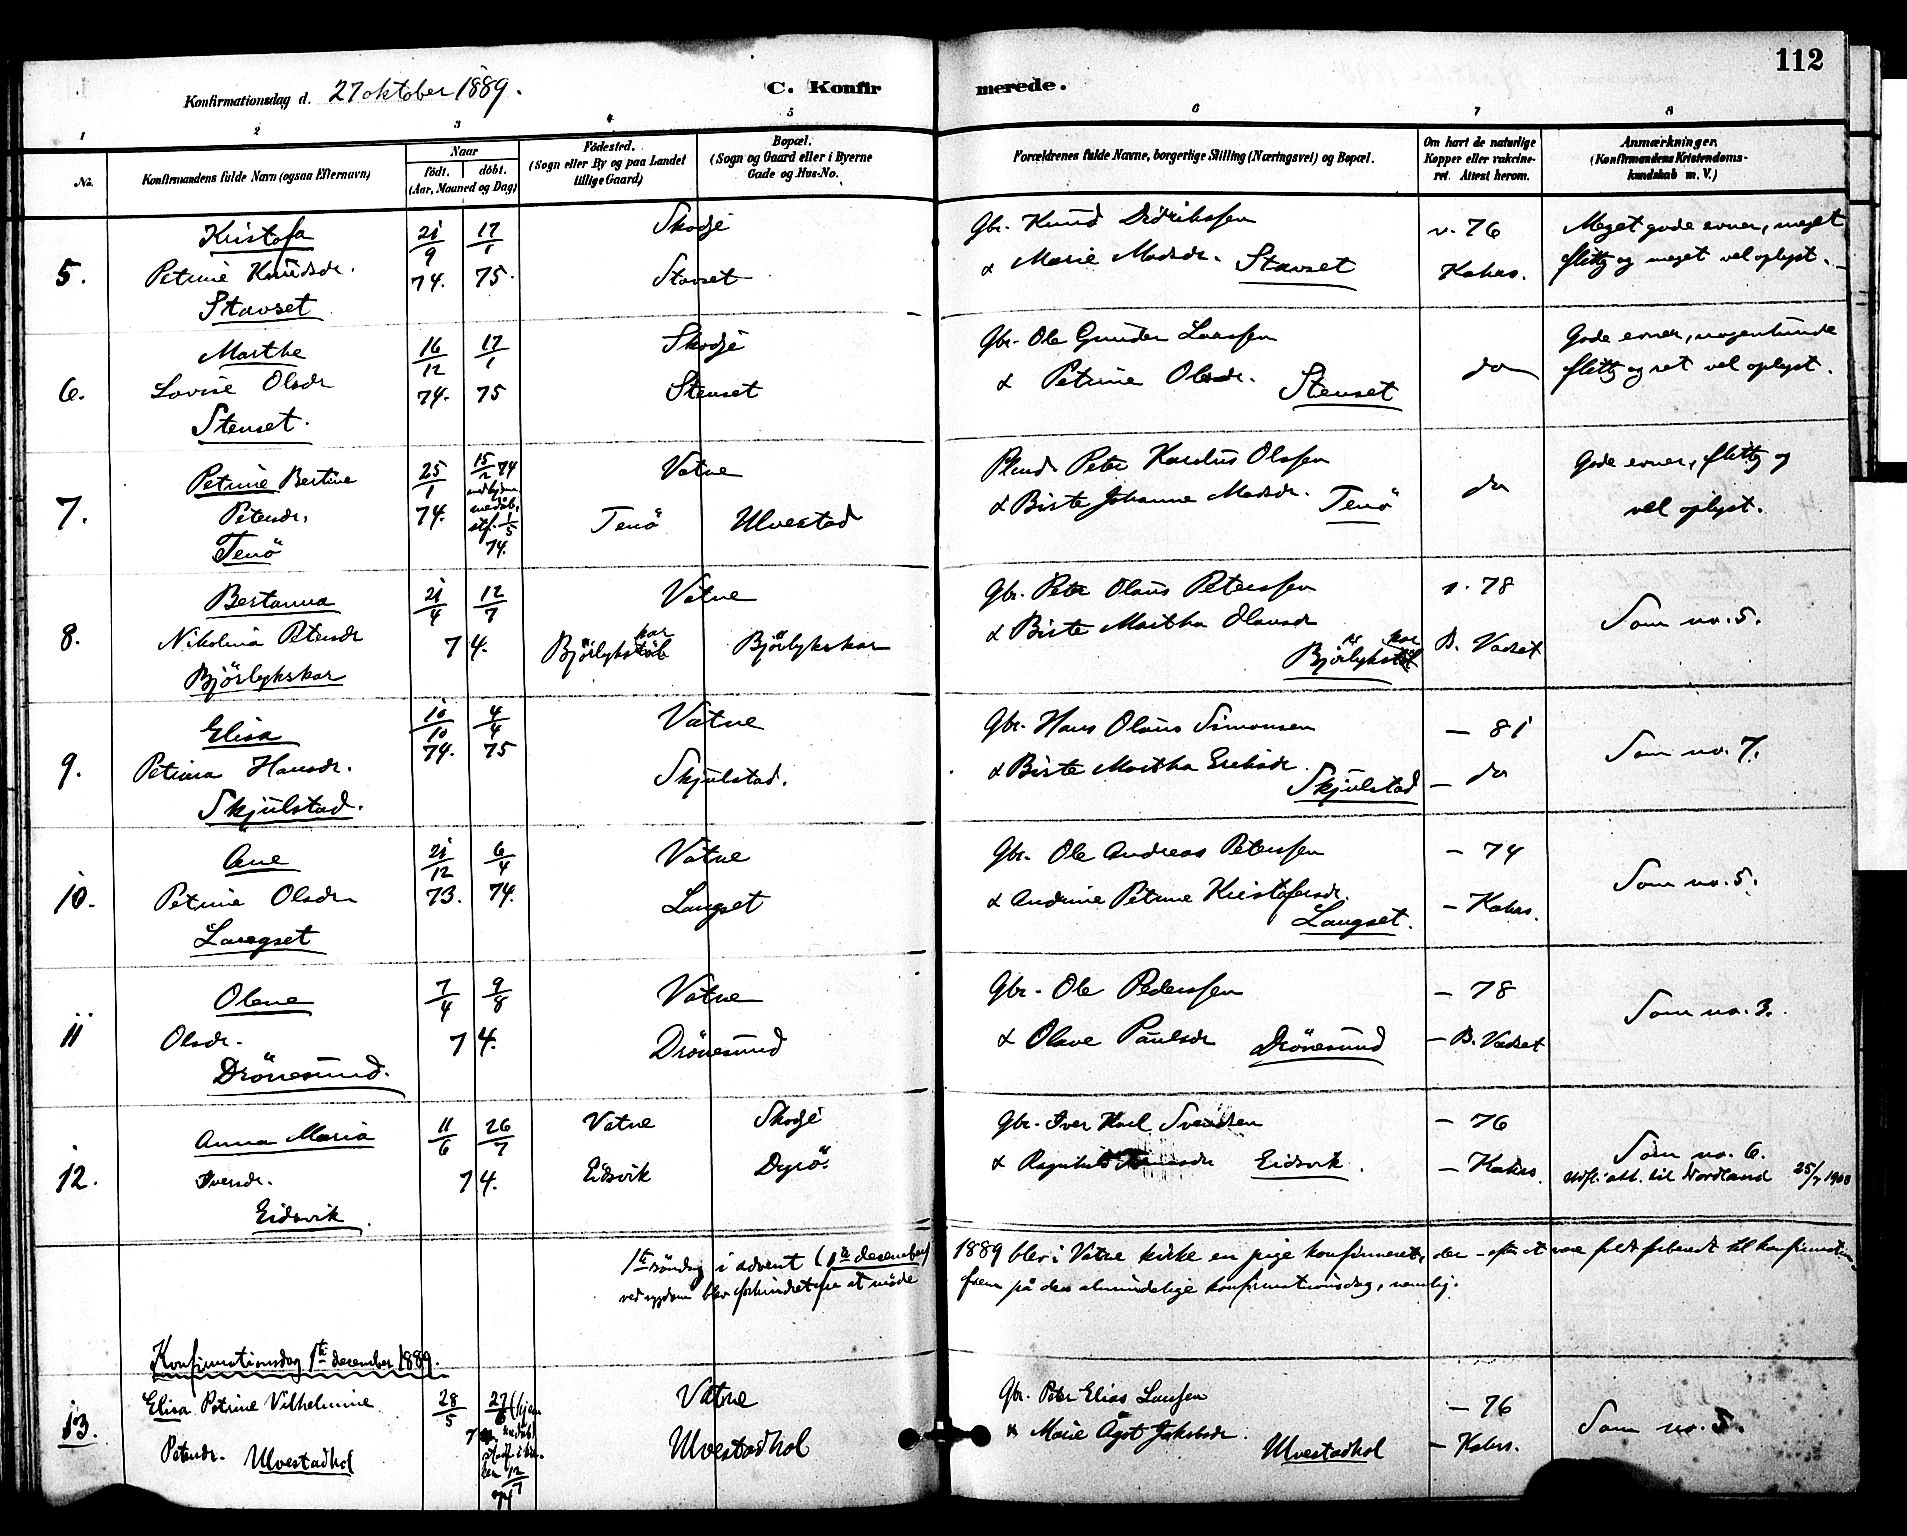 112
Konfirmationsdag d. 27 oktober 1889.
C. Konfirmerede.
1 2 3 4 5 6 7 8
No.
Konfirmandens fulde Navn (ogsaa Efternavn)
Naar
födt. döbt.
(Aar, Maaned og Dag)
Födested.
(Sogn eller By og paa Landet
tillige Gaard)
Bopæl.
(Sogn og Gaard eller i Byerne
Gade og Hus-No.
Forældrenes fulde Navne, borgerlige Stilling (Næringsvei) og Bopæl.
Om havt de naturlige
Kopper eller vaccine-
ret. Attest herom.
Anmærkninger.
(Konfirmandens Kristendoms-
kundskab m. V.)
Kristofa 21/9 17/1 Skodje Gbr. Knud Didrikssen v. 76 Meget gode evner, meget
5. Petrine Knudsdr. 74. 75. Stavset & Marie Madsdr. Stavset Kahrs. flittig og meget vel oplyst.
Stavset
Marthe 16/12 17/1 Skodje Gbr. Ole Gunder Larssen do Gode evner, nogenlunde
6. Lovise Olsdr 74. 75 Stenset & Petrine Olsdr. Stenset flittig og ret vel oplyst.
Stenset.
Petrine Bertine 25/1 15/2 74 Vatne Peter Olssen do Gode evner, flittig og
7. Petersdr. 74. stf. 1/5 74. Tenö Ulvestad & Birte Johanne Madsdr. Tenö vel oplyst.
Tenö
Bertanna 21/4 12/7 Vatne Gbr. Peter Olaus Peterssen v. 78 Som no. 5.
8. Nikolina Petersdr 74. Björlykskar Björlykskar & Birte Martha Olausdr Björlykskar B. Vadset
Björlykskar
Elisa 10/10 4/4 Vatne Gbr. Hans Olaus Simonsen — 81 Som no. 7.
9. Petrina Hansdr. 74. 75 Skjulstad. & Birte Martha Eriksdr. Skjulstad — do
Skjulstad.
Ane 21/12 6/4 Vatne Gbr. Ole Andreas Peterssen — 74 Som no. 5.
10. Petrine Olsdr 73. 74. Langset & Andrine Petrine Kristofersdr. Langset. — Kahrs.
Langset
Olene 7/4 9/8 Vatne Gbr. Ole Pederssen — 78 Som no. 3.
11 Olsdr. 74. Drönesund & Olave Paulsdr Drönesund — B. Vadset
Drönesund.
Anna Maria 11/6 26/7 Vatne Skodje Gbr. Iver Karl Svendsen — 76 Som no. 6.
12. Iversdr. 74. Eidsvik Dyrö. & Ragnhild Eidsvik. — Kahrs. Udfl. att. til Nordland 25/7 1900
Eidsvik.
1ste söndag i advent (1ste desember) 1889 blev i Vatne kirke en pige konfirmeret, der – efter at være forberedt til konfirmation
ved sygdom blev forhindret fra at möde frem på den almindelige konfirmationsdag, nemlig:
Konfirmationsdag 1ste desember 1889.
Elisa Petrine Vilhelmine 28/5 27/6 (hjem Vatne Gbr. Peter Elias Larssen — 76 Som no. 5.
13. Petersdr. Ulvestadhol 12/7 74 Ulvestadhol & Marie Ågot Jakobsdr. Ulvestadhol — Kahrs.